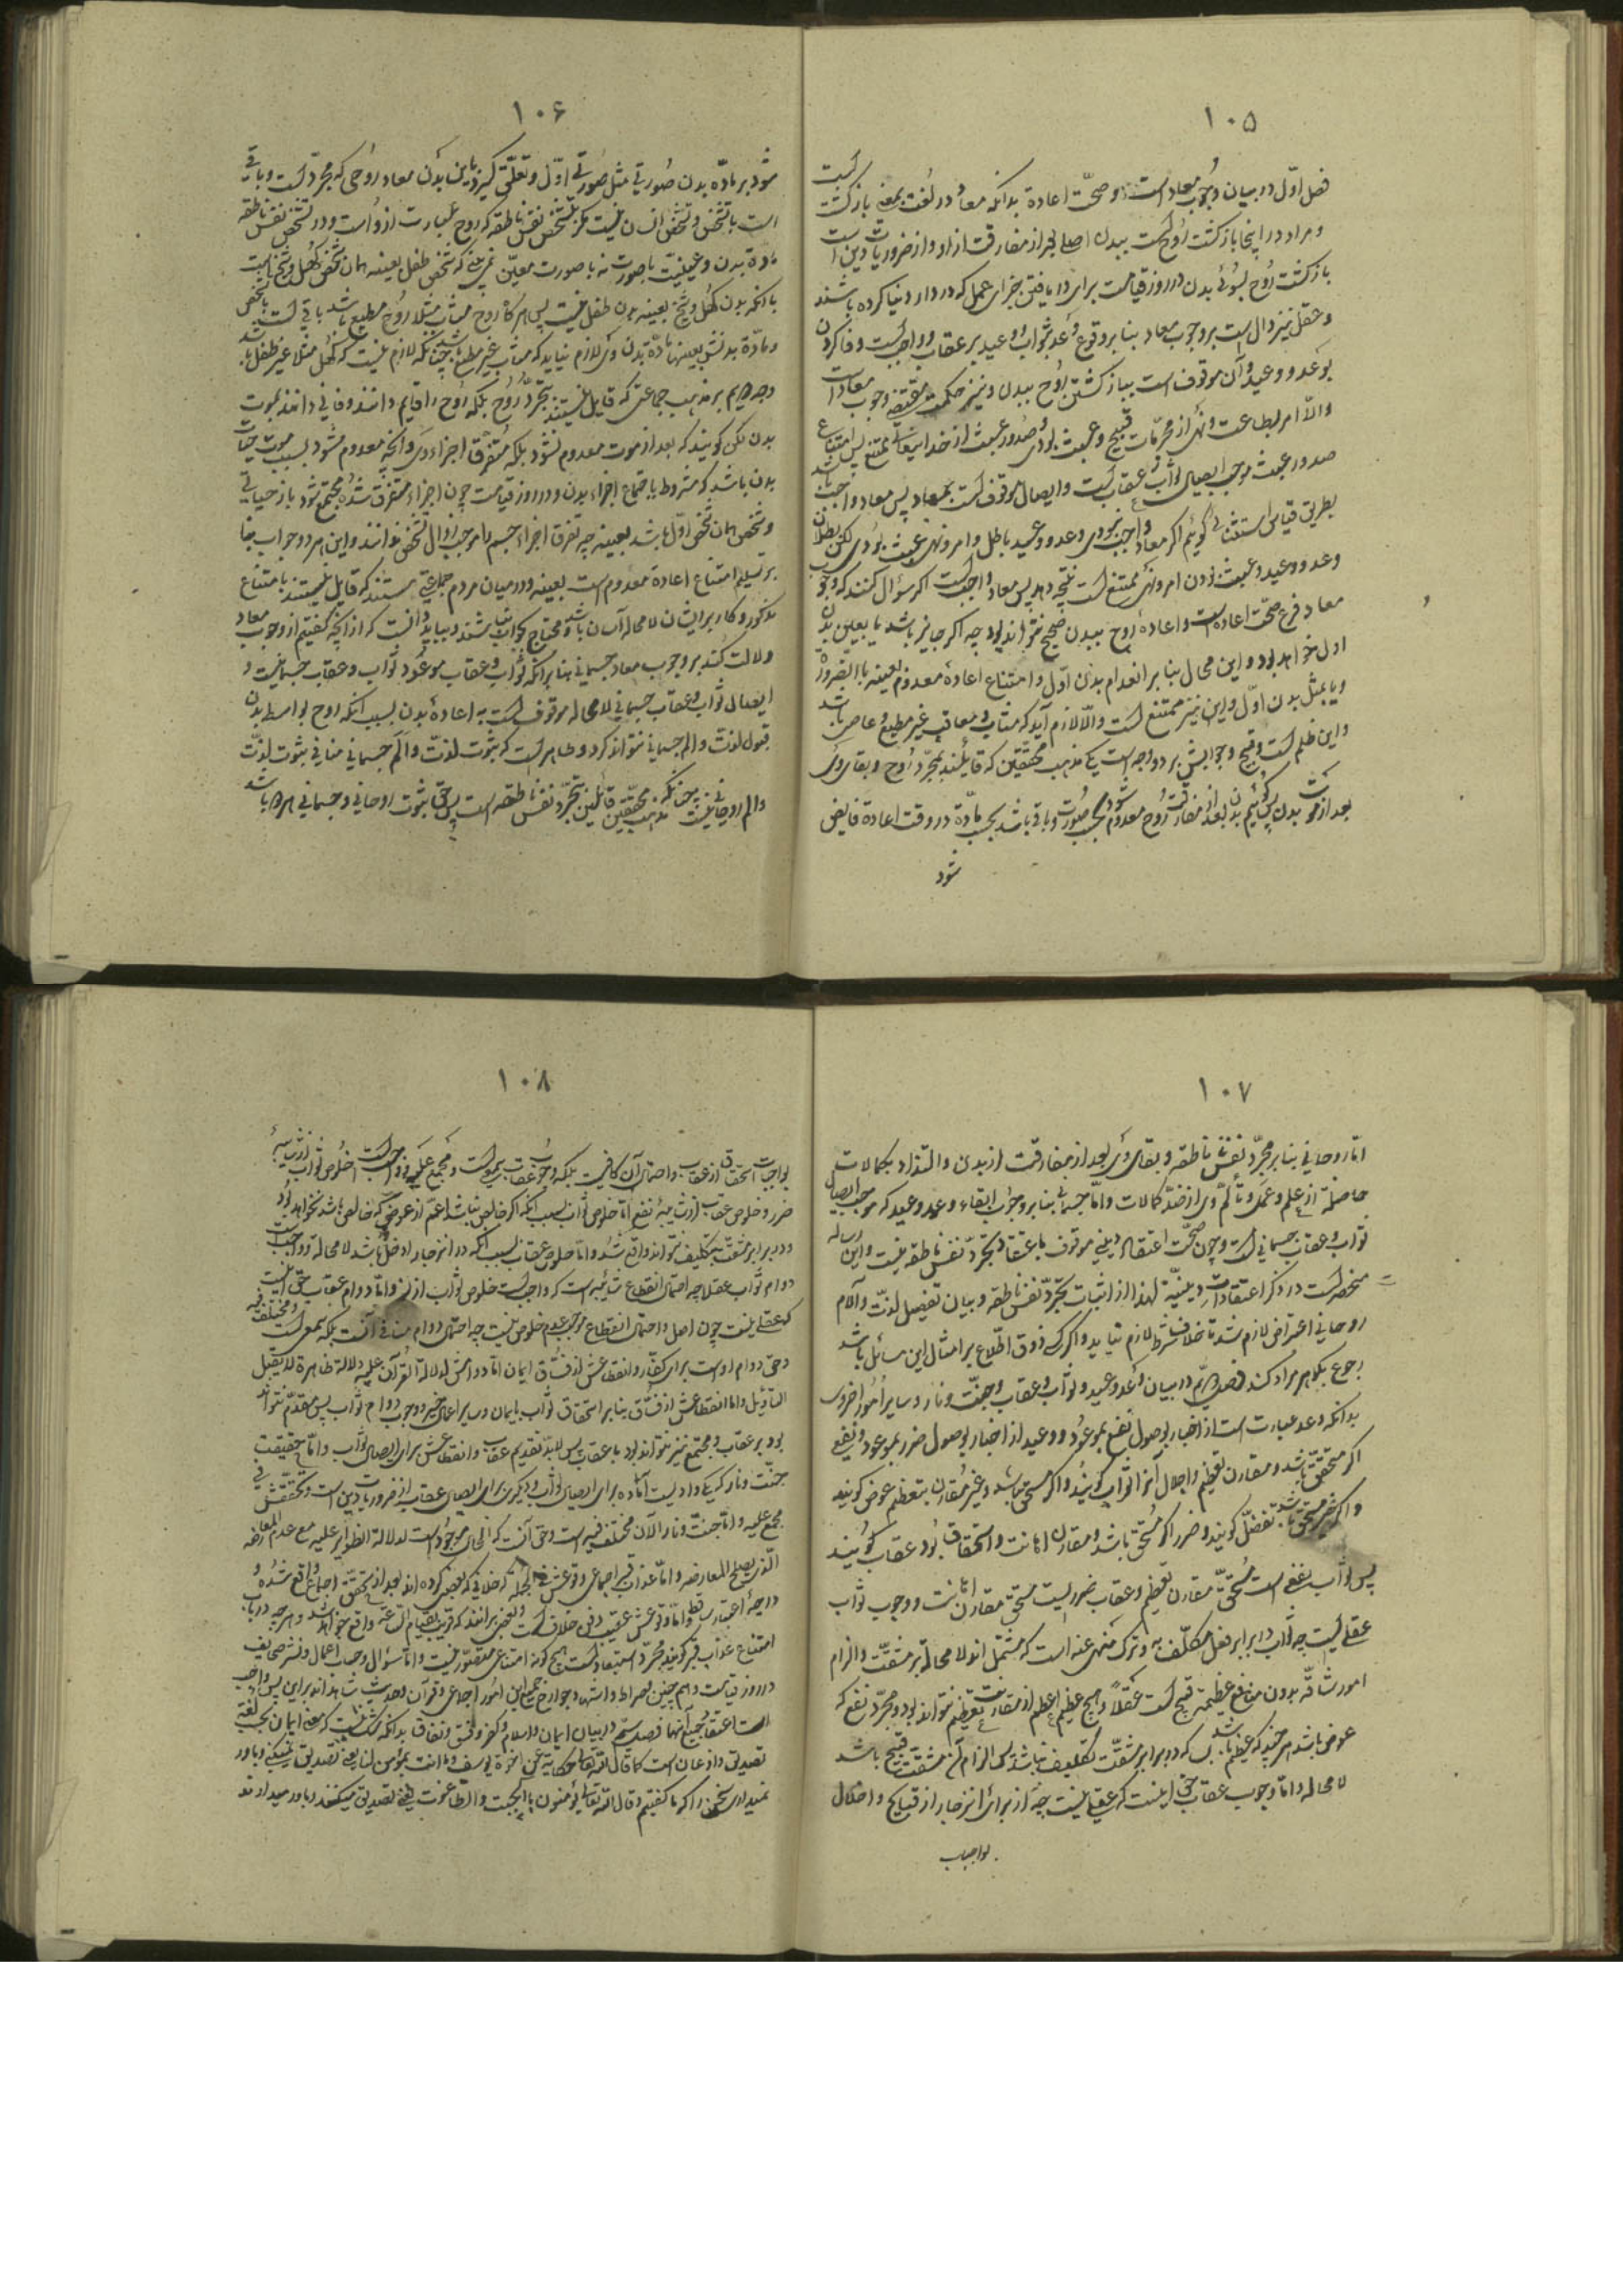 ۱۰۵
فصل اوّل در بیان وجوب معاد است و صحّت اعاده بدانکه معاد در لغت بمعنی بازگشت است
و مراد در اینجا بازگشت روح است ببدن اصلی بعد از مفارقت از او و از ضروریات دین است
بازگشت روح بسوی بدن در روز قیامت برای دریافتن جزای عمل که در دار دنیا کرده باشند
و عقل نیز دال است بر وجوب معاد بنا بر وقوع وعد بثواب و وعید بر عقاب و واجبست وفا کردن
بوعد و وعید و آن موقوف است ببازگشتن روح ببدن و نیز حکمت مقتضی وجوب معاد است
و الّا امر بطاعت و نهی از محرّمات قبیح و عبث بودی و صدور عبث از خدایتعالی ممتنع پس امتناع
صدور عبث موجب ایصال ثواب و عقاب است و ایصال موقوف است بمعاد پس معاد واجب باشد
بطریق قیاس استثنائی گوئیم اگر معاد واجب نبودی وعد و وعید باطل و امر و نهی عبث بودی لکن بطلان
وعد و وعید و عبث بودن امر و نهی ممتنع است نتیجه دهد پس معاد واجب است اگر سؤال کنند که وجوب
معاد فرع صحّت اعاده است و اعادهٔ روح ببدن صحیح نتواند بود چه اگر جایز باشد یا بعین بدن
اول خواهد بود و این محال بنا بر انعدام بدن اوّل و امتناع اعادهٔ معدوم بعینه بالضرورة
و یا بمثل بدن اوّل و این نیز ممتنع است والّا لازم آید که مثاب و معاقب غیر مطیع و عاصی باشد
و این ظلم است و قبیح و جوابش بر دو وجه است یکی مذهب محقّقین که قایلند بتجرّد روح و بقای وی
بعد از موت بدن پس گوئیم بدن بعد از مفارقت روح معدوم شود بحسب صورت و باقی باشد بحسب مادّه در وقت اعاده فایض
شود
۱۰۶
شود بر مادّه بدن صورتی مثل صورت اوّل و تعلّق گیرد باین بدن معاد روحی که مجرّد است و باقی
است با تشخّص و تشخّص انسان نیست مگر بتشخّص نفس ناطقه که روح عبارت از و است و در تشخّص نفس ناطقه
مادّه بدن و عینیّت با صورت نه با صورت معیّن نمی‌بینی که تشخّص طفل بعینه همان تشخّص کهل و شیخ است
با آنکه بدن کهل و شیخ بعینه بدن طفل نیست پس هرگاه روح مثاب مثلا روح مطیع باشد باقی است بتشخّص
و مادّه بدنش بعینها مادّه بدن وی لازم نیاید که مثاب غیر مطیع باشد چنانکه لازم نیست که کهل مثلا غیر طفل باشد
وجه دویم بر مذهب جماعتی که قایل نیستند بتجرّد روح بلکه روح را قایم دانند و فانی دانند بموت
بدن لکن گویند که بعد از موت معدوم نشود بلکه متفرّق اجزاء وی و آنچه معدوم شود بسبب موت حیات
بدن باشد که مشروط باجتماع اجزاء بدن و در روز قیامت چون اجزاء متفرّق شده مجتمع شود باز حیاتی
و شخص همان شخص اوّل باشد بعینه چه تفرّق اجزاء جسم را موجب زوال تشخّص ندانند و این هر دو جواب بنا
بر تسلیم امتناع اعادهٔ معدوم است بعینه و در میان مردم جماعتی هستند که قایل نیستند بامتناع
مذکور و کار بر ایشان لا محاله آسان باشد و محتاج بجواب نباشند و بباید دانست که از آنچه گفتیم از وجوب معاد
دلالت کند بر وجوب معاد جسمانی بنا بر آنکه ثواب و عقاب موعود ثواب و عقاب جسمانیست و
ایصال ثواب و عقاب جسمانی لا محاله موقوف است به اعادهٔ بدن بسبب آنکه روح بواسطه بدن
قبول لذّت و الم جسمانی نتواند کرد و ظاهر است که ثبوت لذّت و الم جسمانی منافی ثبوت لذّت
و الم روحانی نیست چنانکه مذهب محقّقین قائلین بتجرّد نفس ناطقه است پس حق ثبوت روحانی و جسمانی هر دو باشد
۱۰۷
امّا روحانی بنا بر تجرّد نفس ناطقه و بقای وی بعد از مفارقت از بدن و التذاذ بکمالات
حاصله از علم و عمل و تألّم وی از ضدّ کمالات و امّا جسمانی بنا بر وجوب ایفاء وعد و وعید که موجب ایصال
ثواب و عقاب جسمانی است و چون صحّت اعتقاد دینی موقوف باعتقاد تجرّد نفس ناطقه نیست و این رساله
منحصر است در ذکر اعتقادات دینیّه لهذا از اثبات تجرّد نفس ناطقه و بیان تفصیل لذّت و آلام
روحانی اعراض لازم شد تا خلاف شرط لازم نیاید و اگر کسی ذوق اطّلاع بر امثال این مسائل باشد
رجوع بگوهر مراد کند فصل دویم در بیان وعد و وعید و ثواب و عقاب و جنّت و نار و سایر امور اخروی
بدانکه وعد عبارت است از اخبار بوصول نفع بموعود و وعید از اخبار بوصول ضرر بموعود و نفع
اگر مستحق باشد و مقارن تعظیم و اجلال آنرا ثواب گویند و اگر مستحق باشد و غیر مقارن بتعظیم عوض گویند
و اگر غیر مستحق باشد تفضّل گویند و ضرر اگر مستحق باشد و مقارن اهانت و استحقاق بود عقاب گویند
پس ثواب نفعی است مستحق مقارن تعظیم و عقاب ضرریست مستحق مقارن اهانت و وجوب ثواب
عقلی است چه ثواب در برابر فعل مکلّف به و ترک منهی عنه است که مشتمل‌اند لا محاله بر مشقّت و الزام
امور شاقّه بدون منافع عظیمه قبیح است عقلاً و هیچ عظیم اعظم از مقارنت تعظیم نتواند بود و مجرّد نفع که
عوض باشد هر چند که عظیم باشد که در برابر مشقّت تکلیف نباشد پس الزام آن مشقّت قبیح باشد
لا محاله و امّا وجوب عقاب حق اینست که عقلی نیست چه از برای انزجار از قبایح و اخلال
بواجبات
۱۰۸
بواجبات استحقاق از عقاب و احتمال آن کافیست بلکه وجوب عقاب سمعی است و مجمع علیه و واجب است خلوص ثواب از شایبهٔ
ضرر و خلوص عقاب از شایبهٔ نفع امّا خلوص ثواب بسبب آنکه اگر خالص نباشد اعمّ از عوضی که خالص باشد نخواهد بود
و در برابر مشقّت تکلیف نتواند واقع شد و امّا خلوص عقاب بسبب آنکه در انزجار ادخل باشد لا محاله و واجب است
دوام ثواب عقلا چه احتمال انقطاع شایبه‌است که واجب است خلوص ثواب از آن و امّا دوام عقاب حق اینست
که عقلی نیست چون اصل و احتمال انقطاع موجب عدم خلوص نیست چه احتمال دوام منافی آنست بلکه سمعی است و مختلف فیه
و حق دوام اوست برای کفّار و انقطاعش از فسّاق ایمان امّا دوامش لدلالة القرآن علیه دلالة ظاهرة لا یقبل
التأویل و امّا انقطاعش از فسّاق بنا بر استحقاق ثواب بایمان و سایر اعمال خیر و وجوب دوام ثواب پس مقدّم نتواند
بود بر عقاب و مجتمع نیز نتواند بود با عقاب پس لابدّ تقدیم عقاب و انقطاعش برای ایصال ثواب و امّا حقیقت
جنّت و نار که یکی وادیست آماده برای ایصال ثواب و دیگری برای ایصال عقاب از ضروریات دین است و تحقّقش فی
مجمع علیه و امّا جنّت و نار الآن مختلف فیه است و حق آنست که الحال موجود است لدلالة الظواهر علیه مع عدم المعارضه
الّذی یصلح للمعارضه و امّا عذاب قبر اجماعی و وقوعش فی الجمله و خلافی که بعضی کرده‌اند بعد از تحقّق اجماع واقع شده و
درجهٔ اعتبار ساقط و امّا وقوعش عقیب دفن خلاف است و بعضی برانند که قریب بقیام السّاعه واقع خواهد شد و هر چه در باب
امتناع عذاب قبر گویند مجرّد استبعاد است هیچ گونه امتناعی متصوّر نیست و امّا سؤال و حساب اعمال و نشر صحایف
در روز قیامت و هم چنین صراط و اشهاد جوارح جمیع این امور اجماعی و قرآن و حدیث شاهداند بر این پس واجب
است اعتقاد بجمیع آنها فصل سیّم در بیان ایمان و اسلام و کفر و فسق و نفاق بدانکه شک نیست که معنی ایمان بحسب لغت
تصدیق و اذعان است کما قال اللّه تعالی حکایة عن اخوة یوسف و ما انت بمؤمن لنا یعنی تصدیق نمیکنی و باور
نمیداری سخن را که ما گفتیم و قال اللّه تعالی یؤمنون بالجبت و الطّاغوت یعنی تصدیق میکنند و باور میدارند